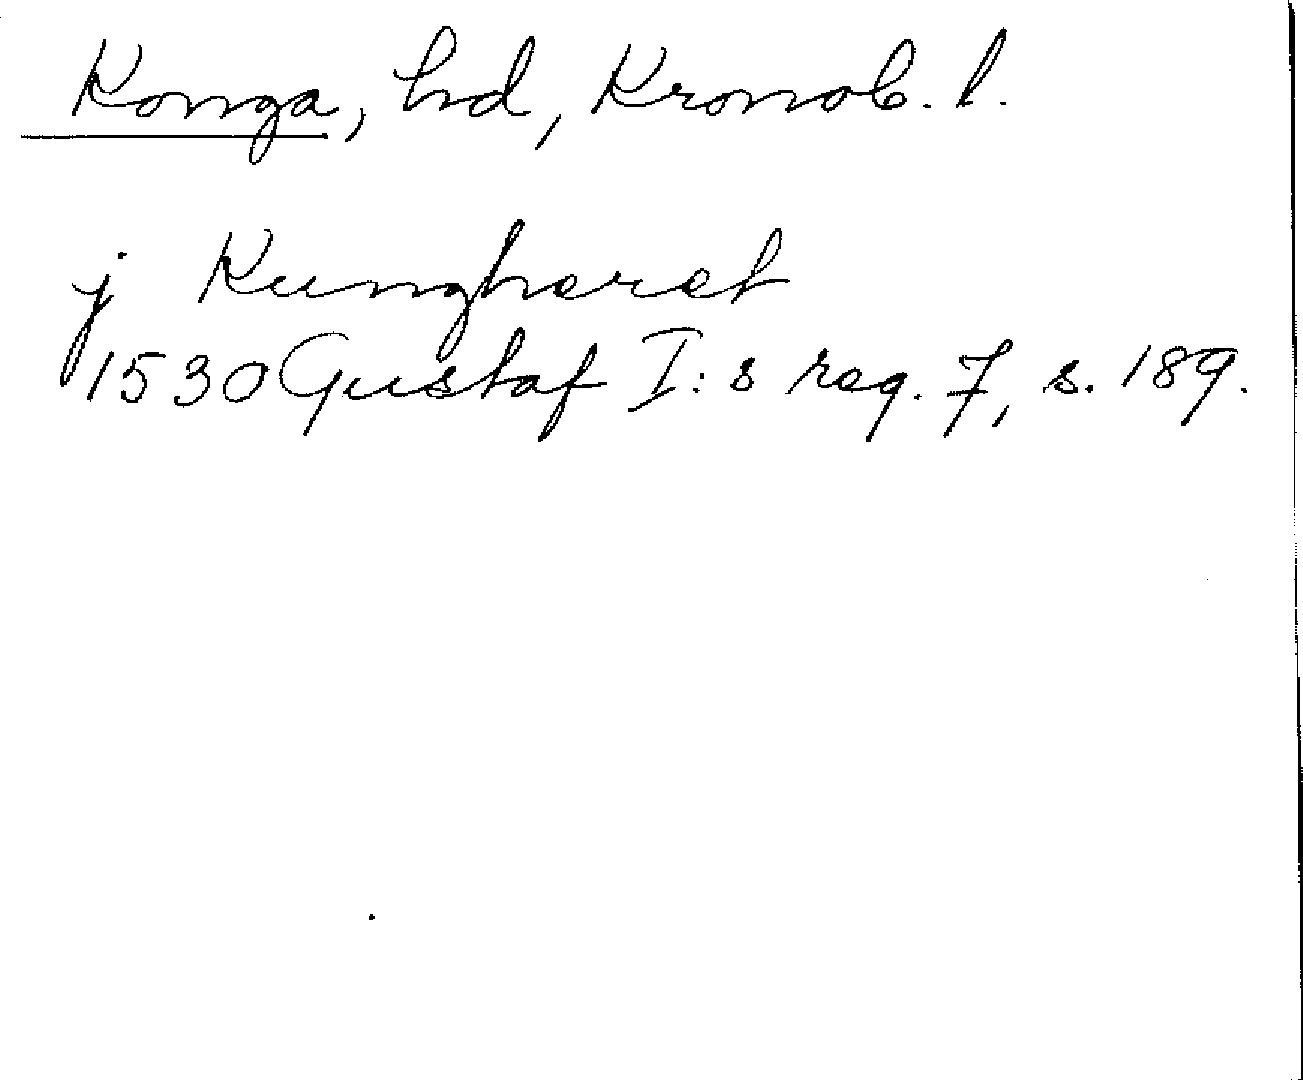 Konga, hd, Kronob. l.
j Kungheret
1530 Gustaf I:s reg. 7, s. 189.